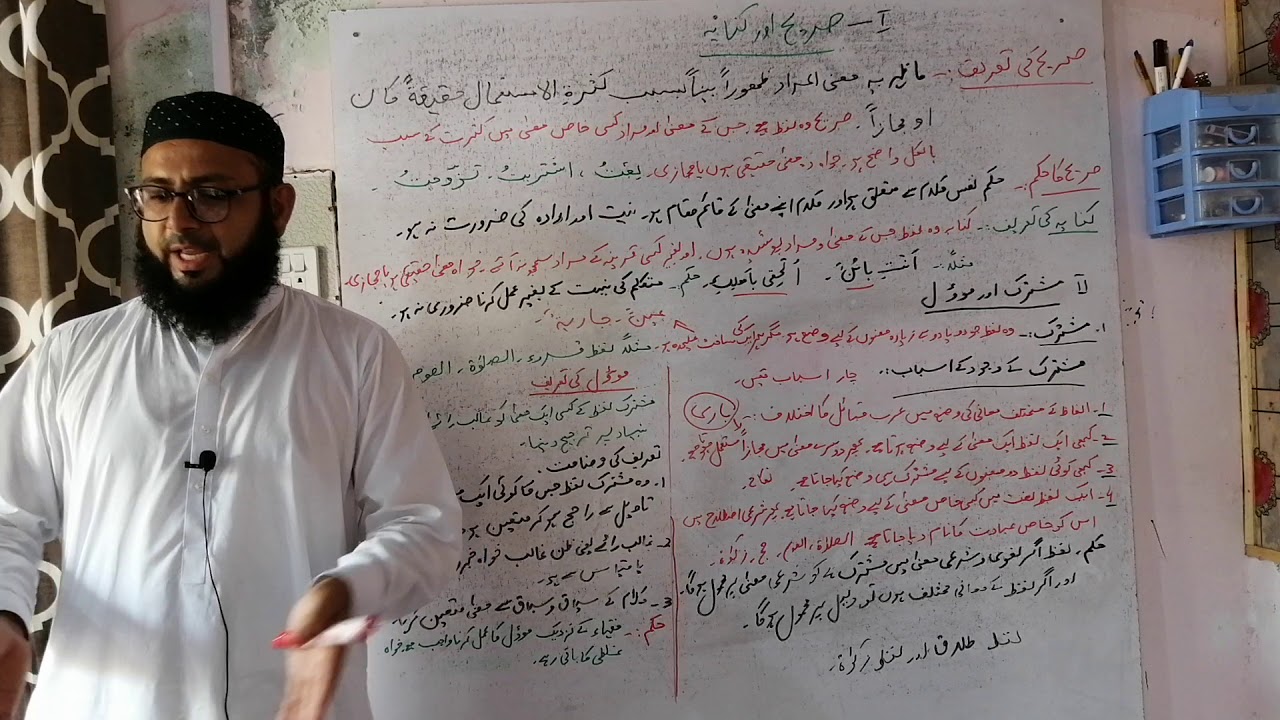 I ـ صریح اور کنایہ
صریح کی تعریف :۔ ما ظهر به معنی المراد ظهوراً بیناً بسبب كثرة الاستعمال حقیقةً كان
او مجازاً۔ صریح وہ لفظ ہے جس کے معنی اور مراد کسی خاص معنی میں کثرت کے سبب
بالکل واضح ہو۔ خواہ وہ معنی حقیقی ہوں یا مجازی۔ بعتُ، اشتریتُ۔ تزوّجتُ۔
صریح کا حکم :۔ حکم نفس کلام سے متعلق ہو اور کلام اپنے معنی کے قائم مقام ہو۔ نیت اور ارادہ کی ضرورت نہ ہو۔
کنایہ کی تعریف :۔ کنایہ وہ لفظ جس کے معنی و مراد پوشیدہ ہوں۔ اور بغیر کسی قرینہ کے مراد سمجھ نہ آئے۔ خواہ معنی حقیقی ہو یا مجازی۔
مثلاً :۔ أنتِ بائنٌ۔ ألحقی بأهلكِ۔ حکم۔ متکلم کی نیت کے بغیر عمل کرنا ضروری نہ ہو۔
II مشترک اور موؤل
عین۔ جاریة
1۔ مشترک :۔ وہ لفظ جو دو یا دو سے زیادہ معنوں کے لیے وضع ہو مگر ہر ایک کی ساخت علیحدہ ہو۔ مثلاً لفظ قروء۔ الصلوٰة۔ الصوم
مشترک کے وجود کے اسباب :۔ چار اسباب ہیں۔
1۔ الفاظ کے مختلف معانی کی وضع میں عرب قبائل کا اختلاف :۔
2۔ کبھی ایک لفظ ایک معنی کے لیے وضع ہوتا ہے۔ پھر دوسرے معنی میں مجازاً مستعمل ہوتا ہے۔
3۔ کبھی کوئی لفظ دو معنوں کے لیے مشترک ہی وضع کیا جاتا ہے۔
4۔ ایک لفظ لغت میں کسی خاص معنی کے لیے وضع کیا جاتا ہے پھر شرعی اصطلاح میں
اس کو خاص عبادت کا نام دیا جاتا ہے۔ الصلاة، الصوم۔ حج۔ زکوٰة۔
حکم۔ لفظ اگر لغوی و شرعی معنی میں مشترک ہے تو شرعی معنی پر محمول ہوگا۔
اور اگر لفظ کے معانی مختلف ہوں تو دلیل پر محمول ہوگا۔
لفظ طلاق اور لفظ زکوٰة۔
موؤل کی تعریف
مشترک لفظ کے کسی ایک معنی کو غالب رائے
بنیاد پر ترجیح دینا۔
تعریف کی وضاحت۔
1۔ وہ مشترک لفظ جس کا کوئی ایک
تاویل سے راجح ہو کر متعین ہو
2۔ غالب رائے یعنی ظن غالب خواہ خبر
یا قیاس سے ہو۔
3۔ کلام کے سیاق و سباق سے معنی متعین کرنا
حکم :۔ فقہاء کے نزدیک موؤل کا عمل کرنا واجب ہے۔ خواہ
غلطی کا باقی رہے۔